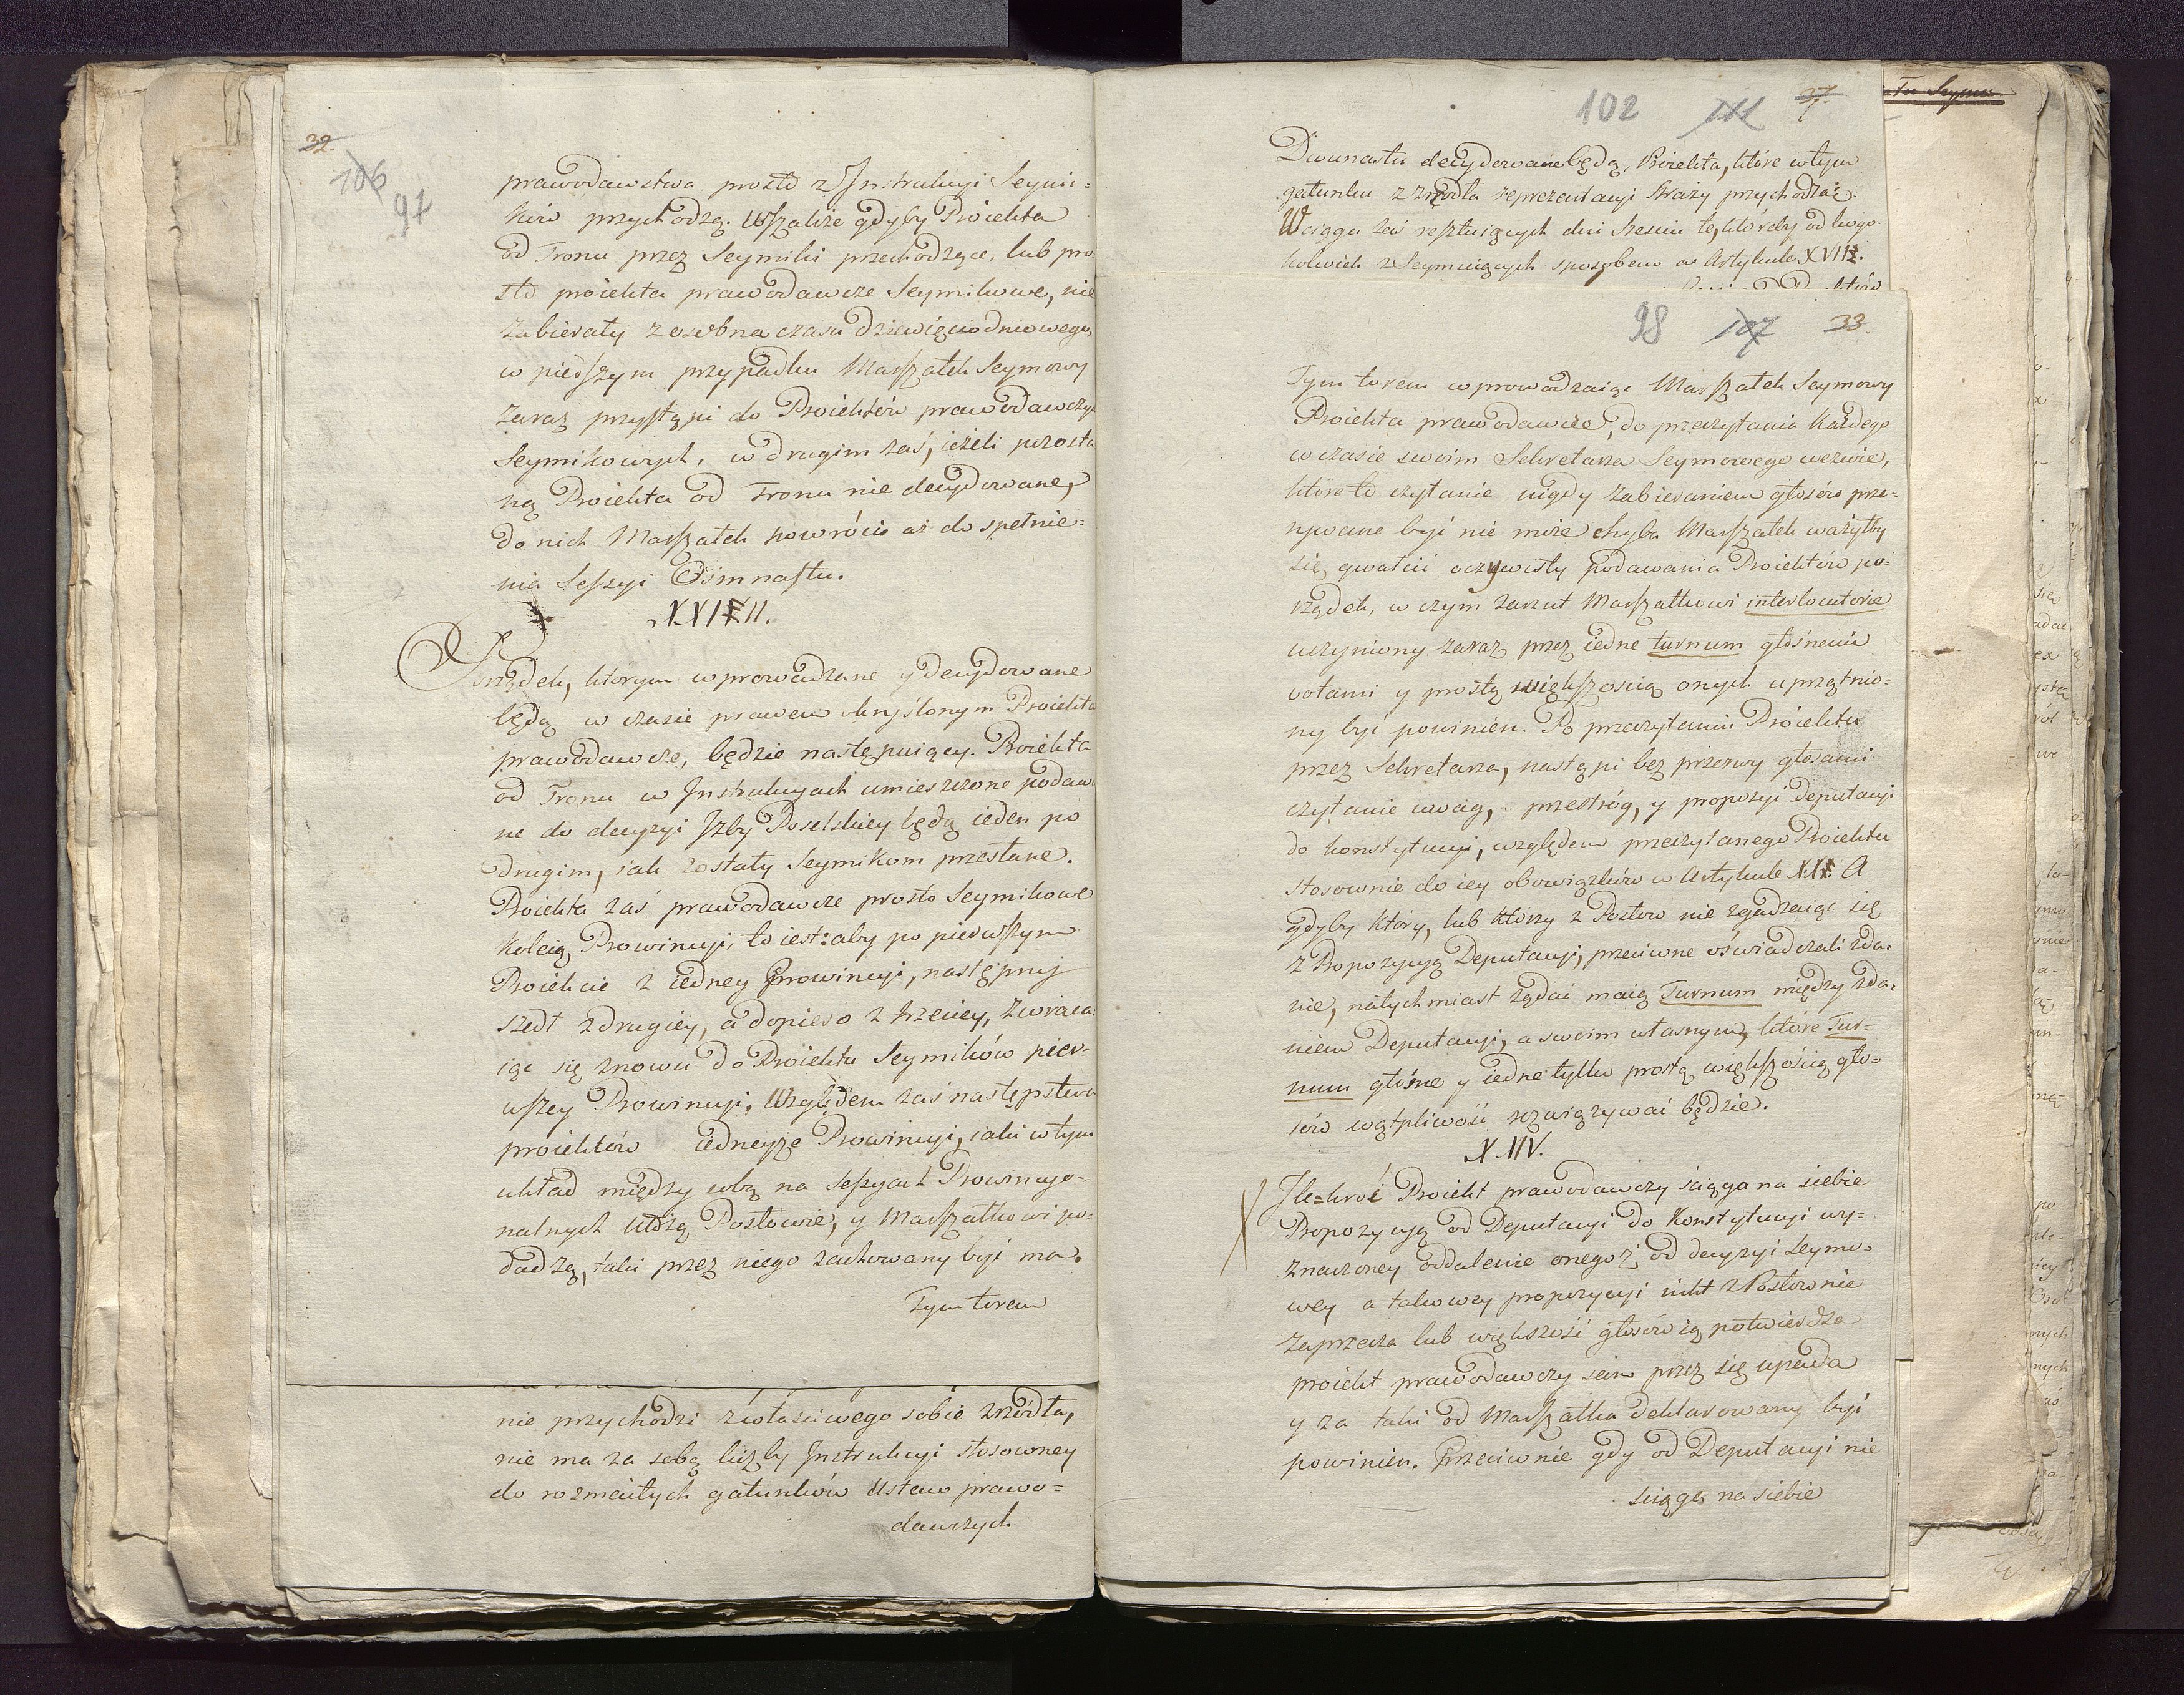 32.
106
97
prawodawstwa prosto z Jnstrukcyi Seymi=
ków przychodzą. Wszakże gdyby Proiekta
od Tronu przez Seymiki przechodzące, lub pro=
sto proiekta prawodawcze Seymikowe, nie
zabierały z osobna czasu dziewięciodniowego,
w pierszym przypadku Marszałek Seymowy
zaraz przystąpi do Proiektów prawodawczych
Seymikowych, w drugim zaś, ieżeli pozosta
ną Proiekta od Tronu nie decydowane,
do nich Marszałek powróci aż do spełnie=
nia Seszyi Ośmnastu.
XVIII.
Porządek, którym wprowadzane y decydowane
będą w czasie prawem okryślonym Proiekta
prawodawcze, będzie następuiący. Proiekta
od Tronu w Jnstrukcyach umieszczone podawa
ne do decyzyi Jzby Poselskiey będą ieden po
drugim, iak zostały Seymikom przesłane.
Proiekta zaś prawodawcze prosto Seymikowe
koleią Prowincyi, to iest: aby po pierwszym
Proiekcie z iedney Prowincyi, następny
szedł z drugiéy, a dopiero z trzeciey, zwraca=
iąc się znowu do Proiektu Seymików pier=
wszey Prowincyi. Względem zaś następstwa
proiektów iedneyże Prowincyi, iaki w tym
układ między sobą na Seszyach Prowincyo=
nalnych ułożą Posłowie, y Marszałkowi po=
dadzą, taki przez niego zachowany być ma.
Tym torem
nie przychodzi z właściwego sobie zrzódła,
nie ma za sobą liczby Jnstrukcyi stosowney
do rozmaitych gatunków Ustaw prawo=
dawczych
102 111 37.
Dwunastu decydowane będą, Proiekta, które w tym
gatunku z zrzódła reprezentacyi Straży przychodzą.
W ciągu zaś resztuiących dni Sześciu te, któreby od kogo=
kolwiek z Seymuiących sposobem w Artykule XVIII.
98 107 33.
Tym torem wprowadzaiąc Marszałek Seymowy
Proiekta prawodawcze, do przeczytania każdego
w czasie swoim Sekretarza Seymowego wezwie,
które to czytanie nigdy zabieraniem głosów prze=
rywane być nie może chyba Marszałek ważyłby
się gwałcić oczywisty podawania Proiektów po=
rządek, w czym zarzut Marszałkowi interlocutorie
uczyniony zaraz przez iedne turnum głośnemi
votami y prostą większością onych uprzątnio=
ny być powinien. Po przeczytaniu Proiektu
przez Sekretarza, nastąpi bez przerwy głosami
czytanie uwag, przestróg, y propozycyi Deputacyi
do konstytucyi, względem przeczytanego Proiektu
stosownie do iey obowiązków w Artykule A
gdyby który, lub którzy z Posłow nie zgadzaiąc się
z Propozycyą Deputacyi, przeciwne oświadczali zda=
nie, natychmiast żądać maią Turnum między zda=
niem Deputacyi, a swoim własnym, które Tur=
num głośne y iedne tylko prostą większością gło=
sów wątpliwość rozwiązywać będzie.
XIV.
Jle=kroć Proiekt prawodawczy ściąga na siebie
Propozycyą od Deputacyi do Konstytucyi wy=
znaczoney oddalenie onegoż od decyzyi Seymo=
wey a takowey propozycyi nikt z Posłow nie
zaprzecza lub większość głosów ią potwierdza
proiekt prawodawczy sam przez się upada
y za taki od Marszałka deklarowany być
powinien. Przeciwnie gdy od Deputacyi nie
ściąga na siebie